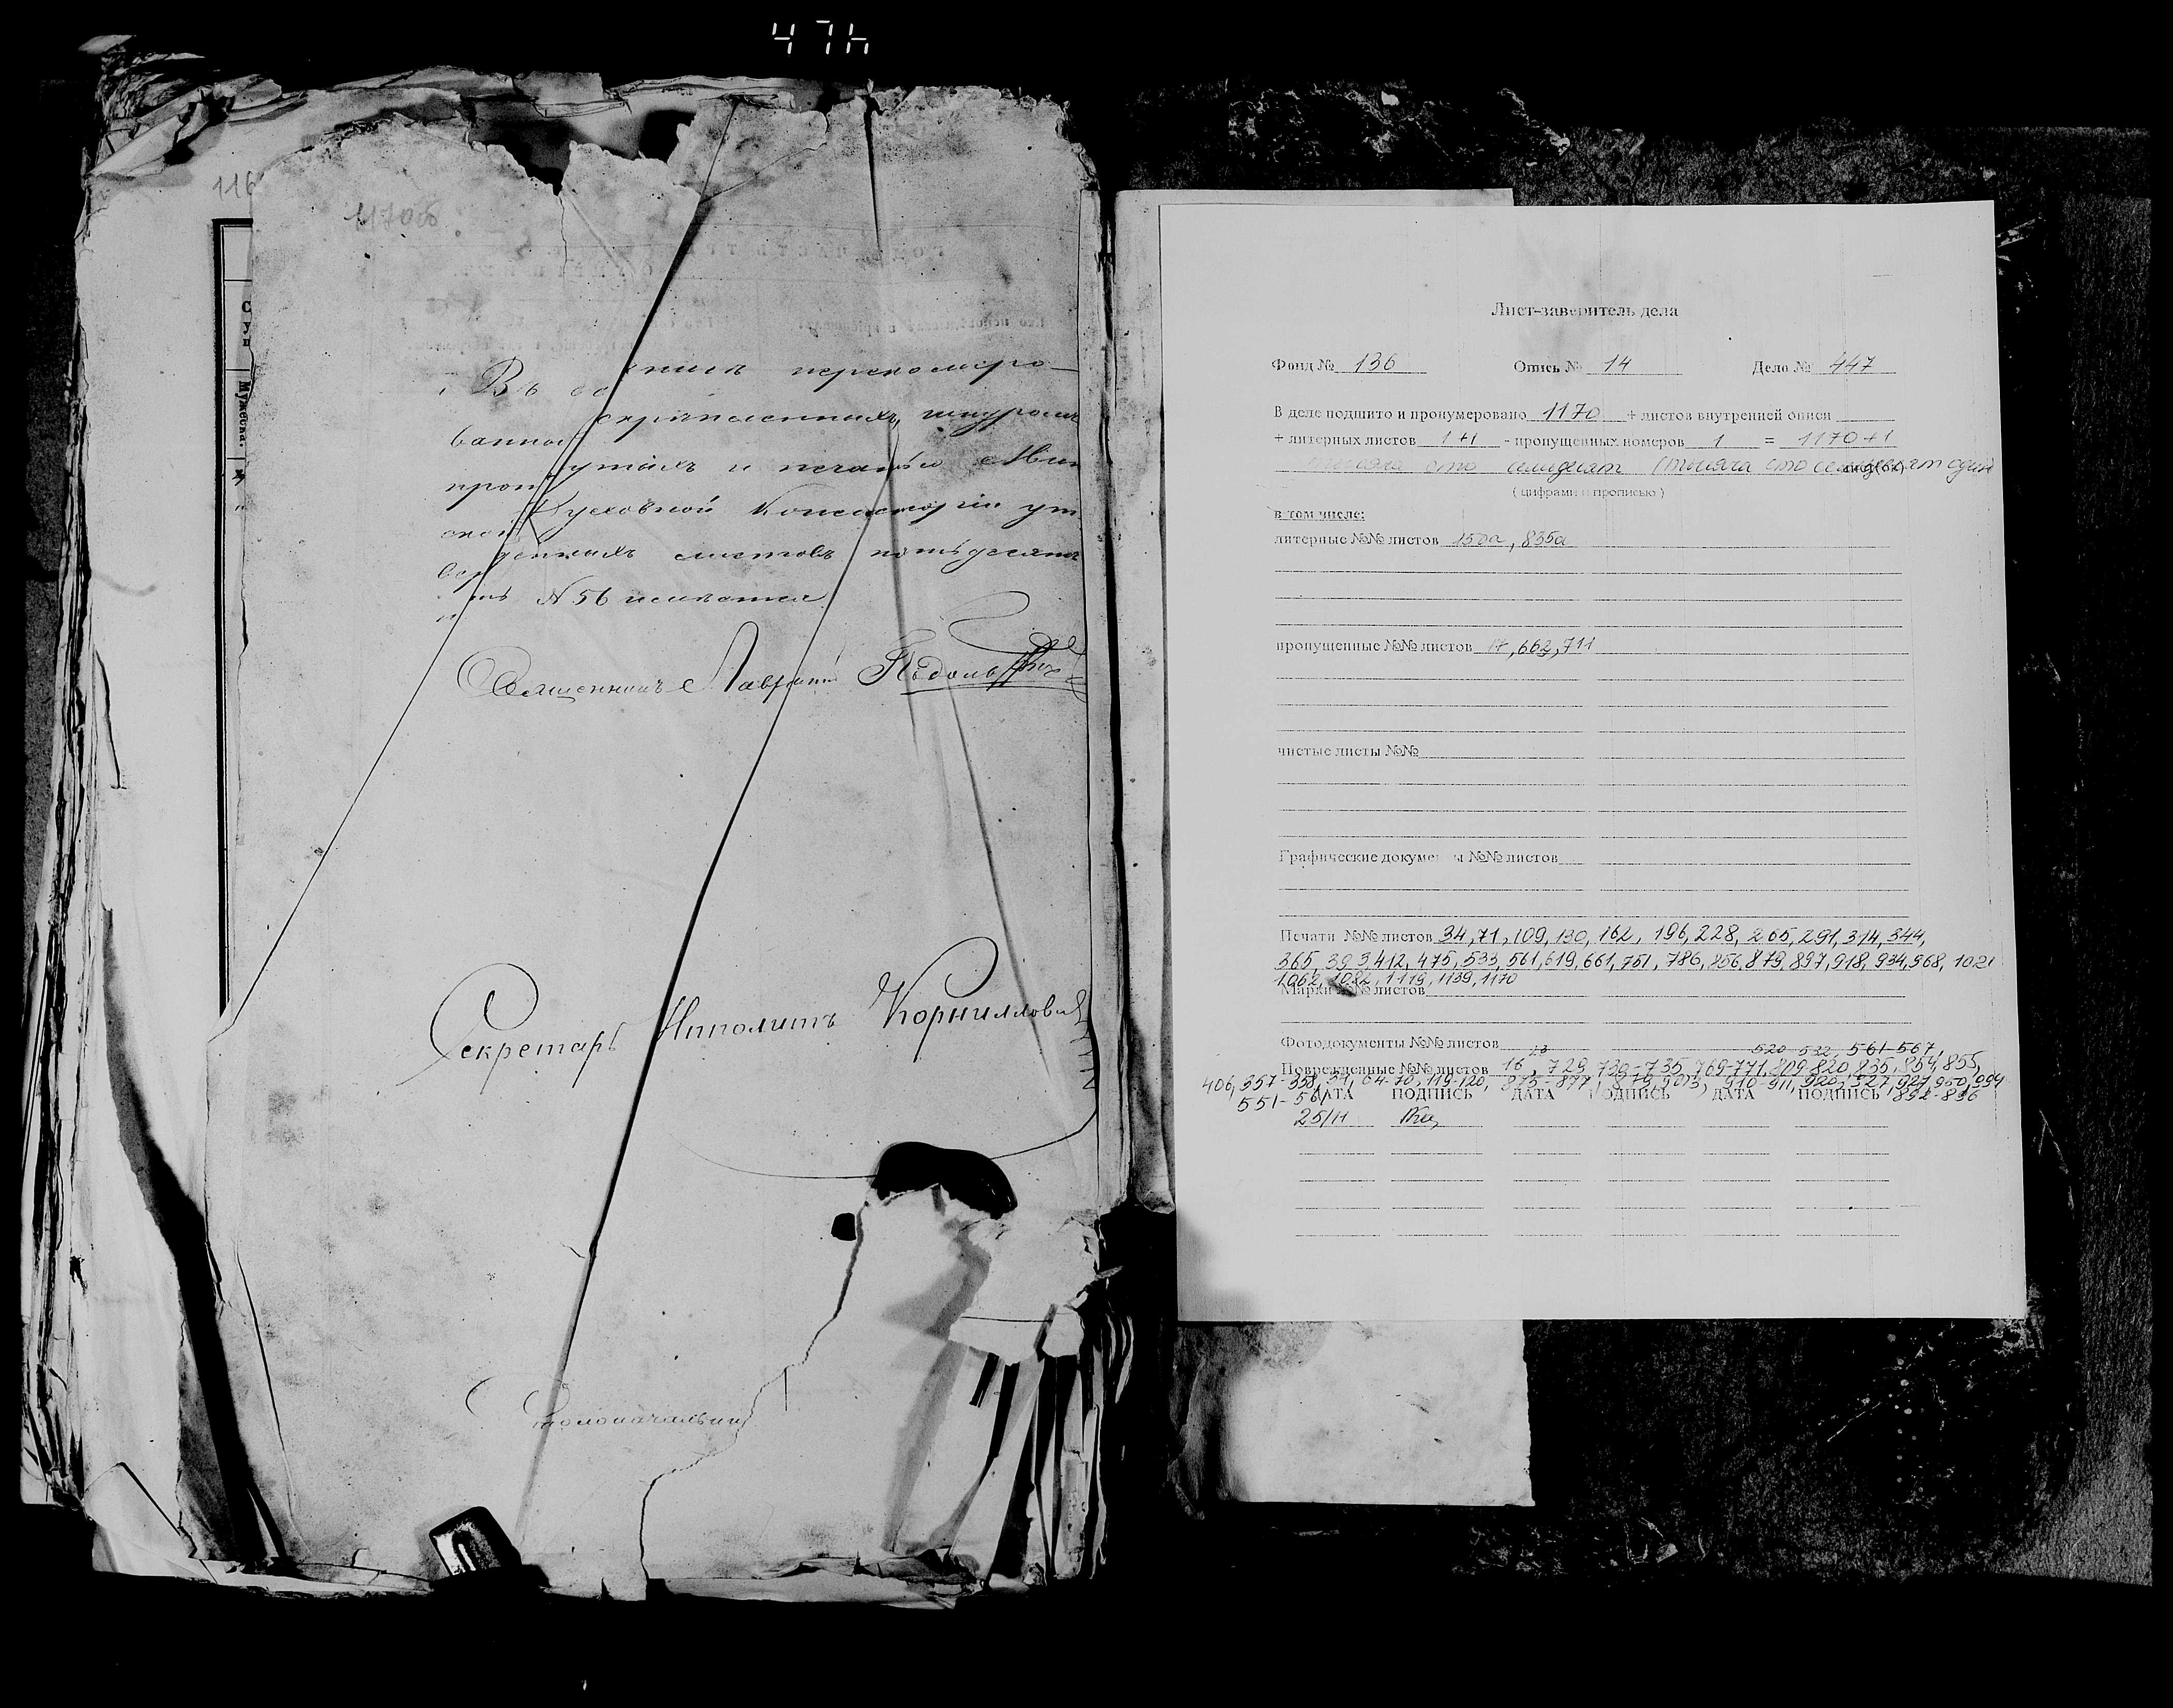 474
116
1170об
Су
Мужеска.
Въ се нихъ перенумеро-
скрѣпленныхъ, шнуромъ
ванныхъ
и печатью Мин
ской Духовной Консисторіи ут
листовъ пятьдесятъ
№ 56 числится
Священникъ Лаврентій
Секретарь Ипполитъ Корниловичъ
Столоначальникъ
Лист-заверитель дела
Фонд № 136 Опись № 14 Дело № 447
В деле подшито и пронумеровано 1170 + листов внутренней описи
+ литерных листов 1+1 - пропущенных номеров 1 = 1170+1
тысяча сто семьдесят (тысяча сто семьдесят один лист(ов)
( цифрами и прописью )
в том числе:
литерные №№ листов 150а, 835а
пропущенные №№ листов 14, 662, 711
чистые листы №№
Графические документы №№ листов
Печати №№ листов 34, 71, 109, 130, 162, 196, 228, 265, 291, 314, 344,
365, 393, 412, 475, 533, 561, 619, 661, 751, 786, 856, 879, 897, 918, 934, 968, 1021
1062, 1082, 1119, 1139, 1170
Марки №№ листов
Фотодокументы №№ листов
520 532, 561-567,
Поврежденные №№ листов 16, 729, 730-735, 769-771, 809, 820, 835, 854, 855,
406, 357-358, 37, 64-70, 119-120, 875-877, 910-911, 920, 927, 950, 994
551-561 892-896
ДАТА ПОДПИСЬ ДАТА ПОДПИСЬ ДАТА ПОДПИСЬ
25/11